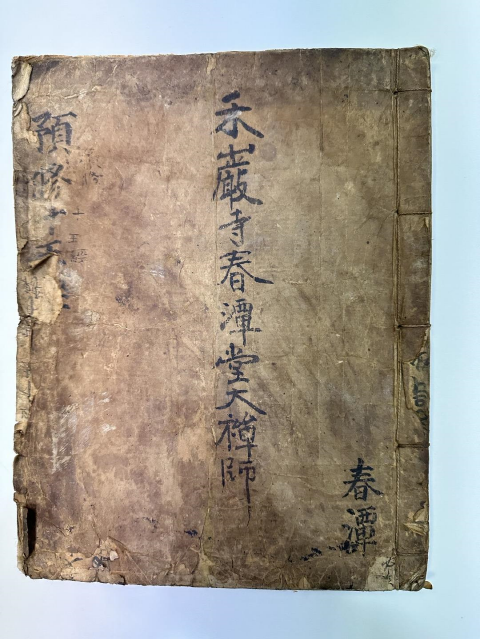 春潭
禾巖寺春潭堂大禪師
預修十王